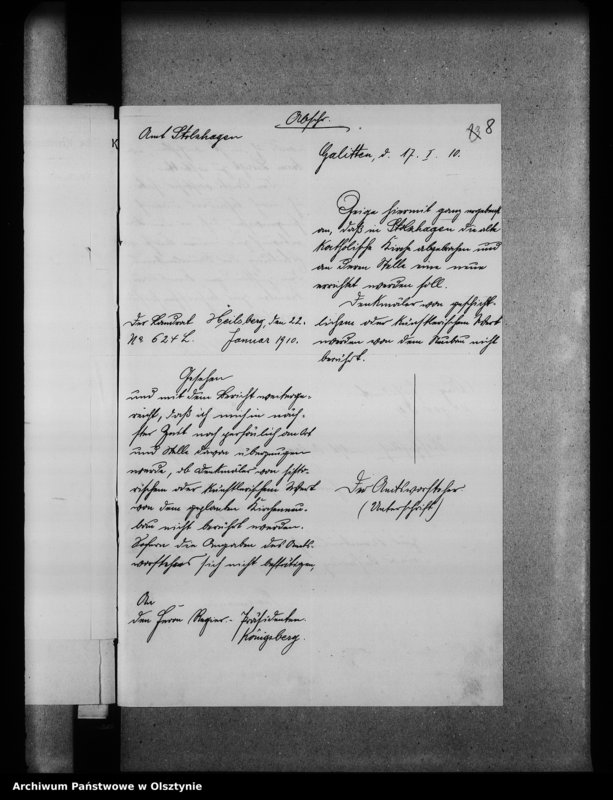 Abschr.
8
Amt Stolzhagen
Galitten, d. 17. I. 10.
Zeige hiermit ganz ergebenst
an, daß in Stolzhagen die alte
katholische Kirche abgebrochen und
an deren Stelle eine neue
errichtet werden soll.
Denkmäler von geschicht-
lichem oder künstlerischem Wert
werden von dem Neubau nicht
berührt.
Der Amtsvorsteher
(Unterschrift)
Der Landrat Heilsberg, den 22.
No 624 L. Januar 1910.
Gesehen
und mit dem Bericht weiterge-
reicht, daß ich mich in näch-
ster Zeit noch persönlich an Ort
und Stelle davon überzeugen
werde, ob Denkmäler von histo-
rischem oder künstlerischem Wert
von dem geplanten Kirchenneu-
bau nicht berührt werden.
Sofern die Angaben des Amts-
vorstehers sich nicht bestätigen,
An
den Herrn Regier.- Präsidenten
Königsberg.
K
Archiwum Państwowe w Olsztynie